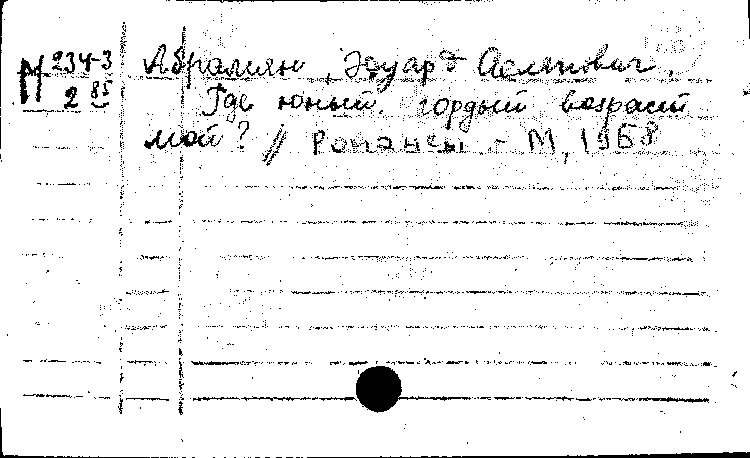 М 234-3
2 85
Абрамян, Эдуард Асланович.
Где юный, гордый возраст
мой? // Романсы - М, 1968